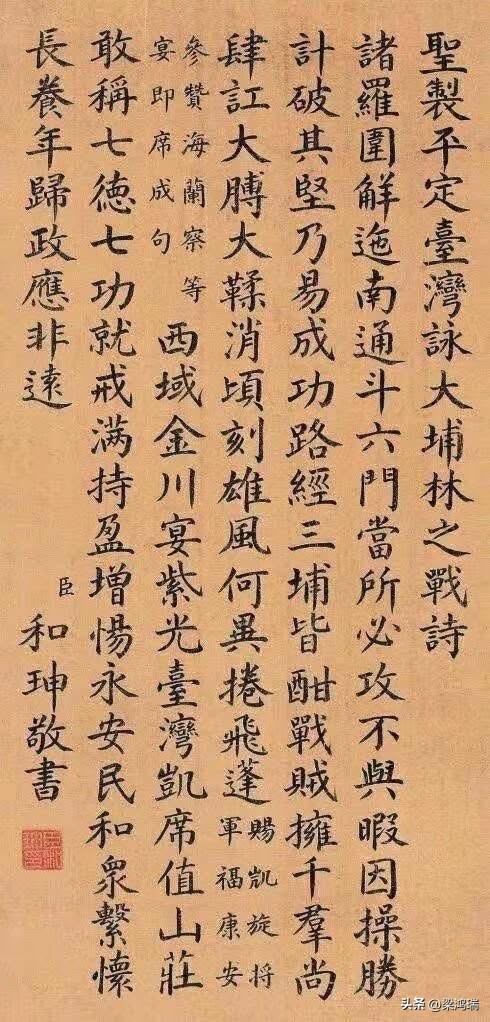 聖製平定臺灣詠大埔林之戰詩
諸羅圍解迤南通斗六門當所必攻不與暇因操勝
計破其堅乃易成功路經三埔皆酣戰賊擁千羣尚
肆訌大膊大鞣消頃刻雄風何異捲飛蓬賜凱旋将
軍福康安
參贊海蘭察等
宴即席成句西域金川宴紫光臺灣凱席值山莊
敢稱七德七功就戒满持盈增惕永安民和衆繫懷
長養年歸政應非遠
臣和珅敬書
头条 @梁鸿瑞